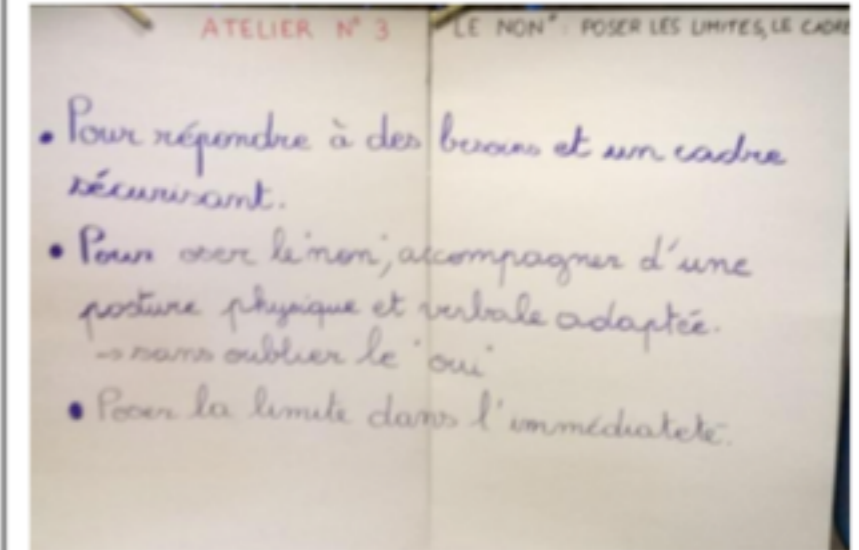 ATELIER N° 3 "LE NON" : POSER LES LIMITES, LE CADRE
• Pour répondre à des besoins et un cadre
sécurisant.
• Pour oser le "non", accompagner d'une
posture physique et verbale adaptée.
→ sans oublier le "oui"
• Poser la limite dans l'immédiateté.